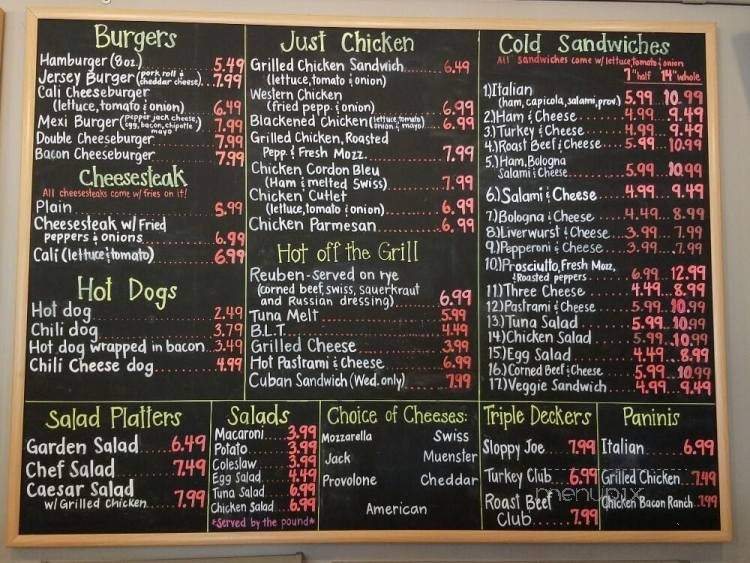 Burgers
Hamburger (8oz.) 5.49
Jersey Burger (pork roll & cheddar cheese) 7.99
Cali Cheeseburger
(lettuce, tomato & onion) 6.49
Mexi Burger (pepper jack cheese, egg, bacon, chipotle mayo) 7.99
Double Cheeseburger 7.99
Bacon Cheeseburger 7.99
Cheesesteak
All cheesesteaks come w/ fries on it!
Plain 5.99
Cheesesteak w/ Fried
peppers & onions 6.99
Cali (lettuce & tomato) 6.99
Hot Dogs
Hot dog 2.49
Chili dog 3.79
Hot dog wrapped in bacon 3.49
Chili Cheese dog 4.99
Just Chicken
Grilled Chicken Sandwich 6.49
(lettuce, tomato & onion)
Western Chicken
(fried pepp. & onion) 6.99
Blackened Chicken (lettuce, tomato onion & mayo) 6.99
Grilled Chicken, Roasted
Pepp. & Fresh Mozz. 7.99
Chicken Cordon Bleu
(Ham & melted Swiss) 7.99
Chicken Cutlet
(lettuce, tomato & onion) 6.99
Chicken Parmesan 6.99
Hot off the Grill
Reuben-served on rye
(corned beef, swiss, sauerkraut
and Russian dressing) 6.99
Tuna Melt 5.99
B.L.T. 4.49
Grilled Cheese 3.99
Hot Pastrami & Cheese 6.99
Cuban Sandwich (Wed. only) 7.99
Cold Sandwiches
All sandwiches come w/ lettuce, tomato & onion
7" half 14" whole
1.) Italian
(ham, capicola, salami, prov.) 5.99 10.99
2.) Ham & Cheese 4.99 9.49
3.) Turkey & Cheese 4.99 9.49
4.) Roast Beef & Cheese 5.99 10.99
5.) Ham, Bologna
Salami & Cheese 5.99 10.99
6.) Salami & Cheese 4.99 9.49
7.) Bologna & Cheese 4.49 8.99
8.) Liverwurst & Cheese 3.99 7.99
9.) Pepperoni & Cheese 3.99 7.99
10.) Prosciutto, Fresh Mozz,
& Roasted peppers 6.99 12.99
11.) Three Cheese 4.49 8.99
12.) Pastrami & Cheese 5.99 10.99
13.) Tuna Salad 5.99 10.99
14.) Chicken Salad 5.99 10.99
15.) Egg Salad 4.49 8.99
16.) Corned Beef & Cheese 5.99 10.99
17.) Veggie Sandwich 4.99 9.49
Salad Platters
Garden Salad 6.49
Chef Salad 7.49
Caesar Salad
w/ Grilled Chicken 7.99
Salads
Macaroni 3.99
Potato 3.99
Coleslaw 3.99
Egg Salad 4.49
Tuna Salad 6.99
Chicken Salad 6.99
*Served by the pound*
Choice of Cheeses:
Mozzarella Swiss
Jack Muensler
Provolone Cheddar
American
Triple Deckers
Sloppy Joe 7.99
Turkey Club 6.99
Roast Beef
Club 7.99
Paninis
Italian 6.99
Grilled Chicken 7.49
Chicken Bacon Ranch 7.99
menupix